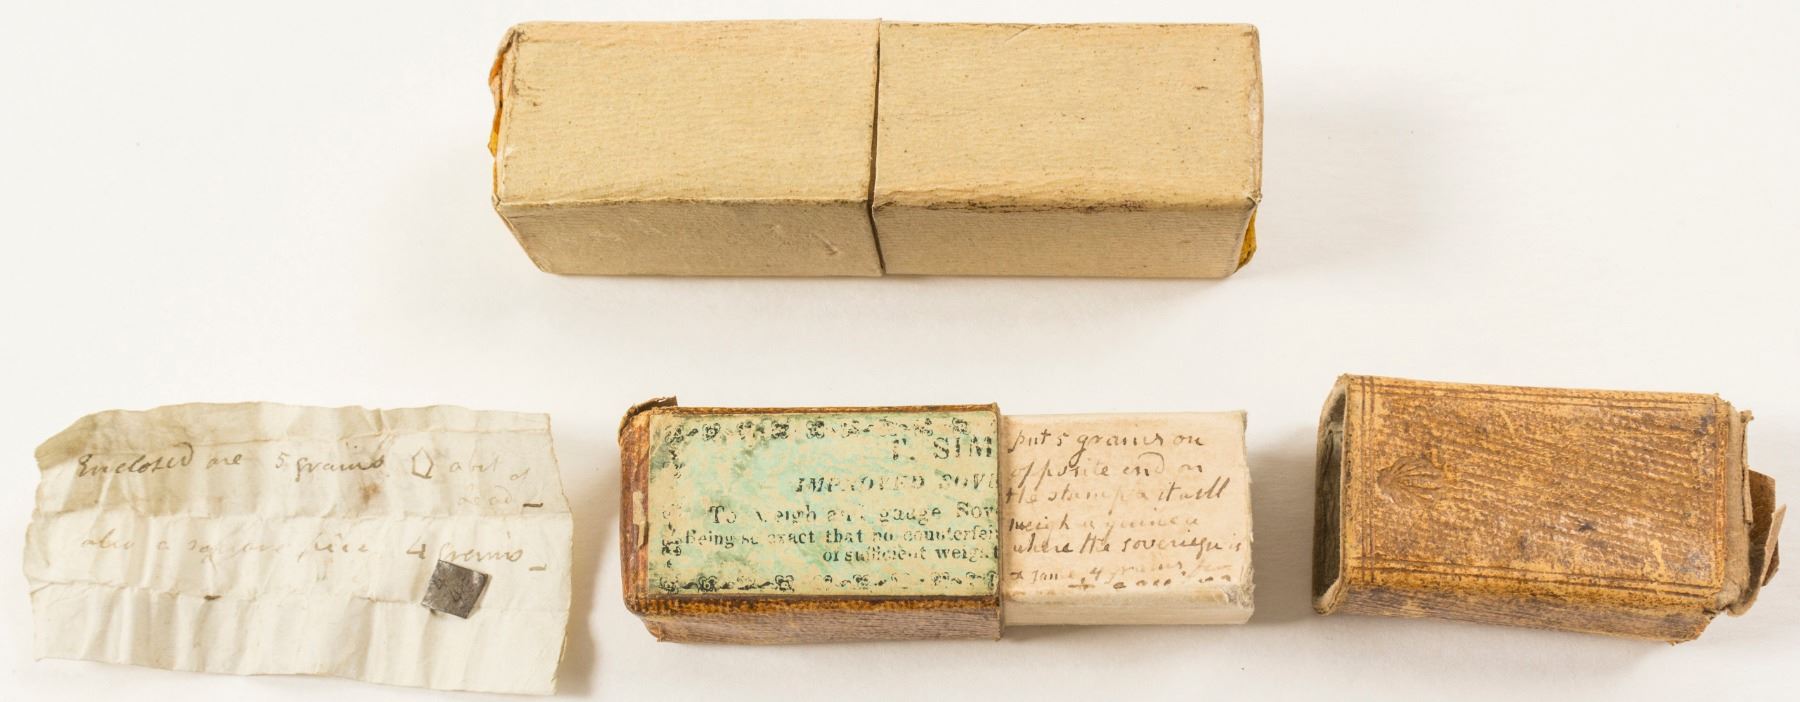 Enclosed are 5 grains a bit
of
lead
also a square piece 4 grains
T. SIM
IMPROVED SOVE
To weigh and gauge Sov
Being so exact that no counterfei
or sufficient weight
put 5 grains on
opposite end on
the stamp & it will
weigh a guinea
where the sovereign is
4 grains